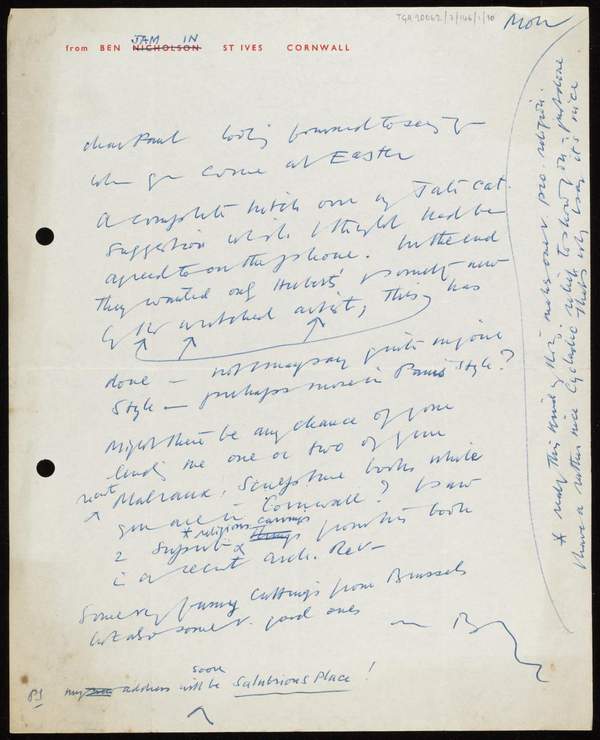 TGA 20062/2/146/1/10
Mon
from BEN NICHOLSON ST IVES CORNWALL
JAM IN
dear Paul looking forward to seeing you
when you come at Easter
A complete hitch over my Tate Cat.
suggestion which I thought had been
agreed to on the phone. In the end
they wanted only Herbert's & something new
by the wretched artist, this has
done — not I may say quite in your
style — perhaps more in Paris Style?
Might there be any chance of your
lending me one or two of your
recent Malraux, Sculpture books while
you are in Cornwall? I saw
* religious carvings
2 superb things from his book
in a recent Arch. Rev —
Some very funny cuttings from Brussels
but also some v. good ones
— B
PS my address will soon be Salubrious Place!
* really this kind of thing makes one pro. religion.
I have a rather nice Cycladic
it's nice